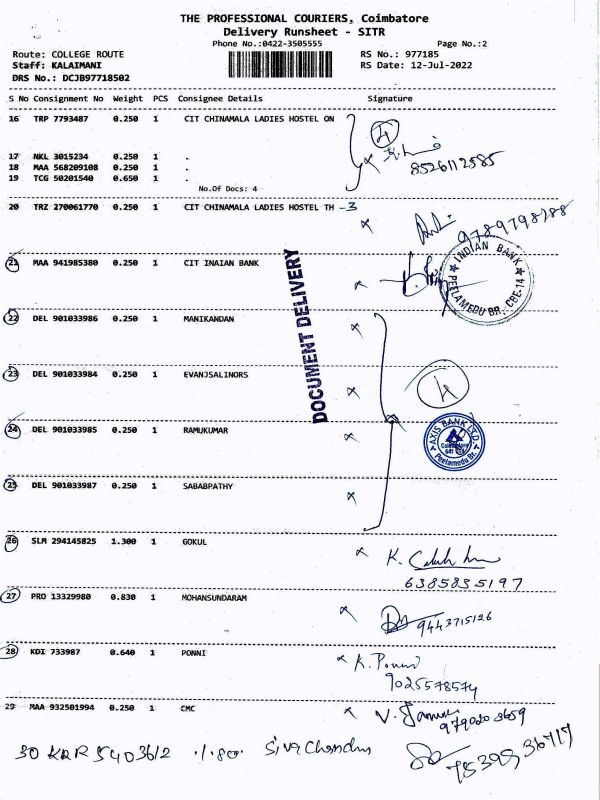 THE PROFESSIONAL COURIERS, Coimbatore
Delivery Runsheet - SITR
Phone No.:0422-3505555 Page No.:2
Route: COLLEGE ROUTE RS No.: 977185
Staff: KALAIMANI RS Date: 12-Jul-2022
DRS No.: DCJB97718502
S No Consignment No Weight PCS Consignee Details Signature
16 TRP 7793487 0.250 1 CIT CHINAMALA LADIES HOSTEL ON
4
8526112585
17 NKL 3015234 0.250 1 .
18 MAA 568209108 0.250 1 .
19 TCG 50201540 0.650 1 .
No.Of Docs: 4
20 TRZ 270061770 0.250 1 CIT CHINAMALA LADIES HOSTEL TH - 3
21 MAA 941985380 0.250 1 CIT INAIAN BANK
INDIAN BANK
PEELAMEDU BR, CBE-14
DOCUMENT DELIVERY
22 DEL 901033986 0.250 1 MANIKANDAN
23 DEL 901033984 0.250 1 EVANJSALINORS
4
24 DEL 901033985 0.250 1 RAMUKUMAR
AXIS BANK LTD.
Coimbatore
Peelamedu Br.
25 DEL 901033987 0.250 1 SABABPATHY
26 SLM 294145825 1.300 1 GOKUL
K.
6385835197
27 PRO 13329980 0.830 1 MOHANSUNDARAM
9443715126
28 KDI 733987 0.640 1 PONNI
K. Ponni
9025578574
29 MAA 932501994 0.250 1 CMC
V.
30 KRR 5403612 1.80. Siva Chandru